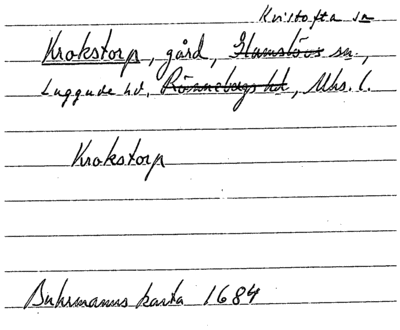 Kvistofta sn
Krokstorp, gård, Glumslövs sn.,
Luggude hd, Rönnebergs hd, Mhs. l.
Krokstorp
Buhrmanns karta 1684